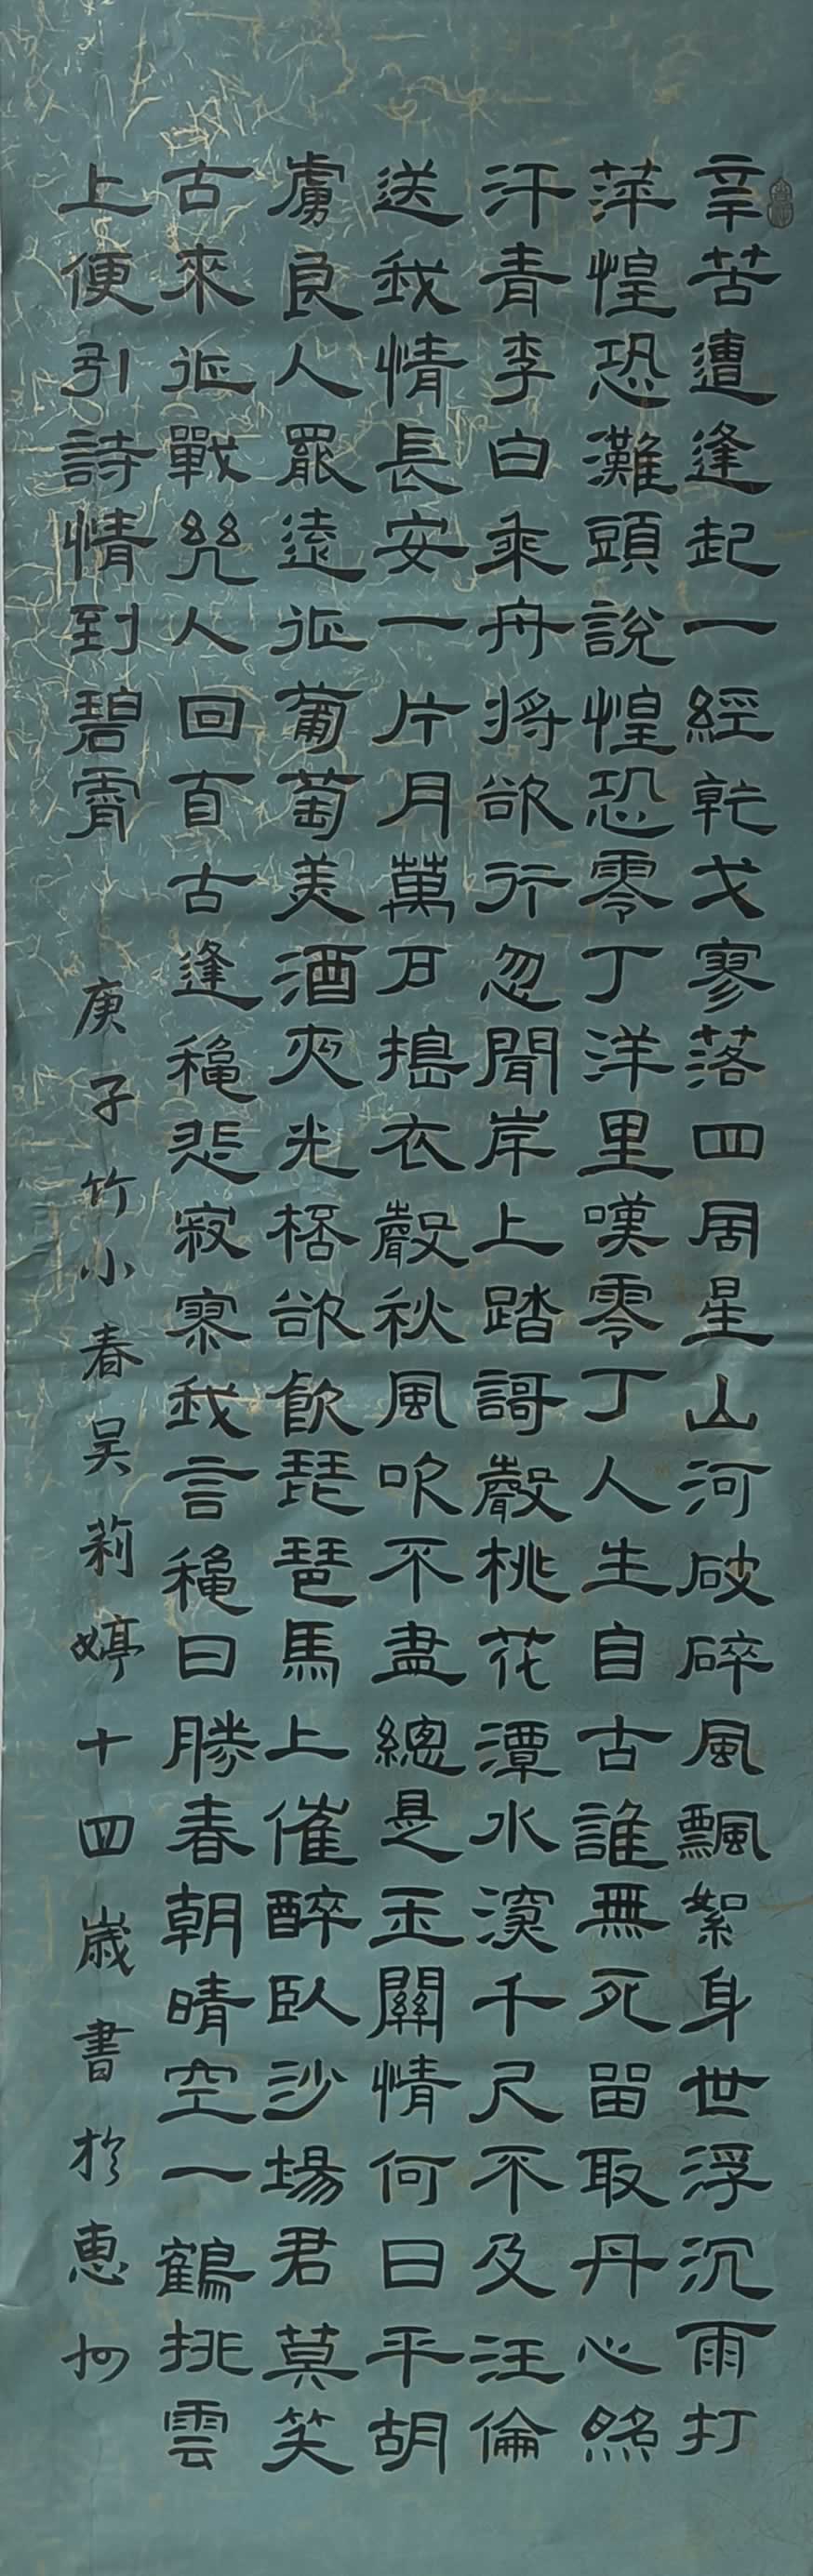 辛苦遭逢起一經乾戈寥落四周星山河破碎風飄絮身世浮沉雨打
萍惶恐灘頭說惶恐零丁洋里嘆零丁人生自古誰無死留取丹心照
汗青李白乘舟將欲行忽聞岸上踏謌聲桃花潭水深千尺不及汪倫
送我情長安一片月萬戶搗衣聲秋風吹不盡總是玉關情何日平胡
虜良人罷遠征葡萄美酒夜光桮欲飲琵琶馬上催醉臥沙場君莫笑
古來征戰幾人回自古逢穐悲寂寥我言穐日勝春朝晴空一鶴排雲
上便引詩情到碧霄 庚子竹小春吳莉婷十四歲書於惠州